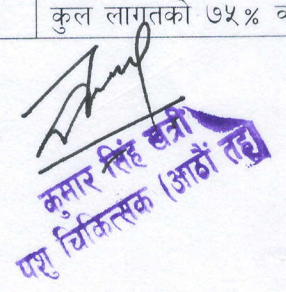 कुल लागतको ७५%
कुमार सिंह खत्री
पशु चिकित्सक (आठौं तह)